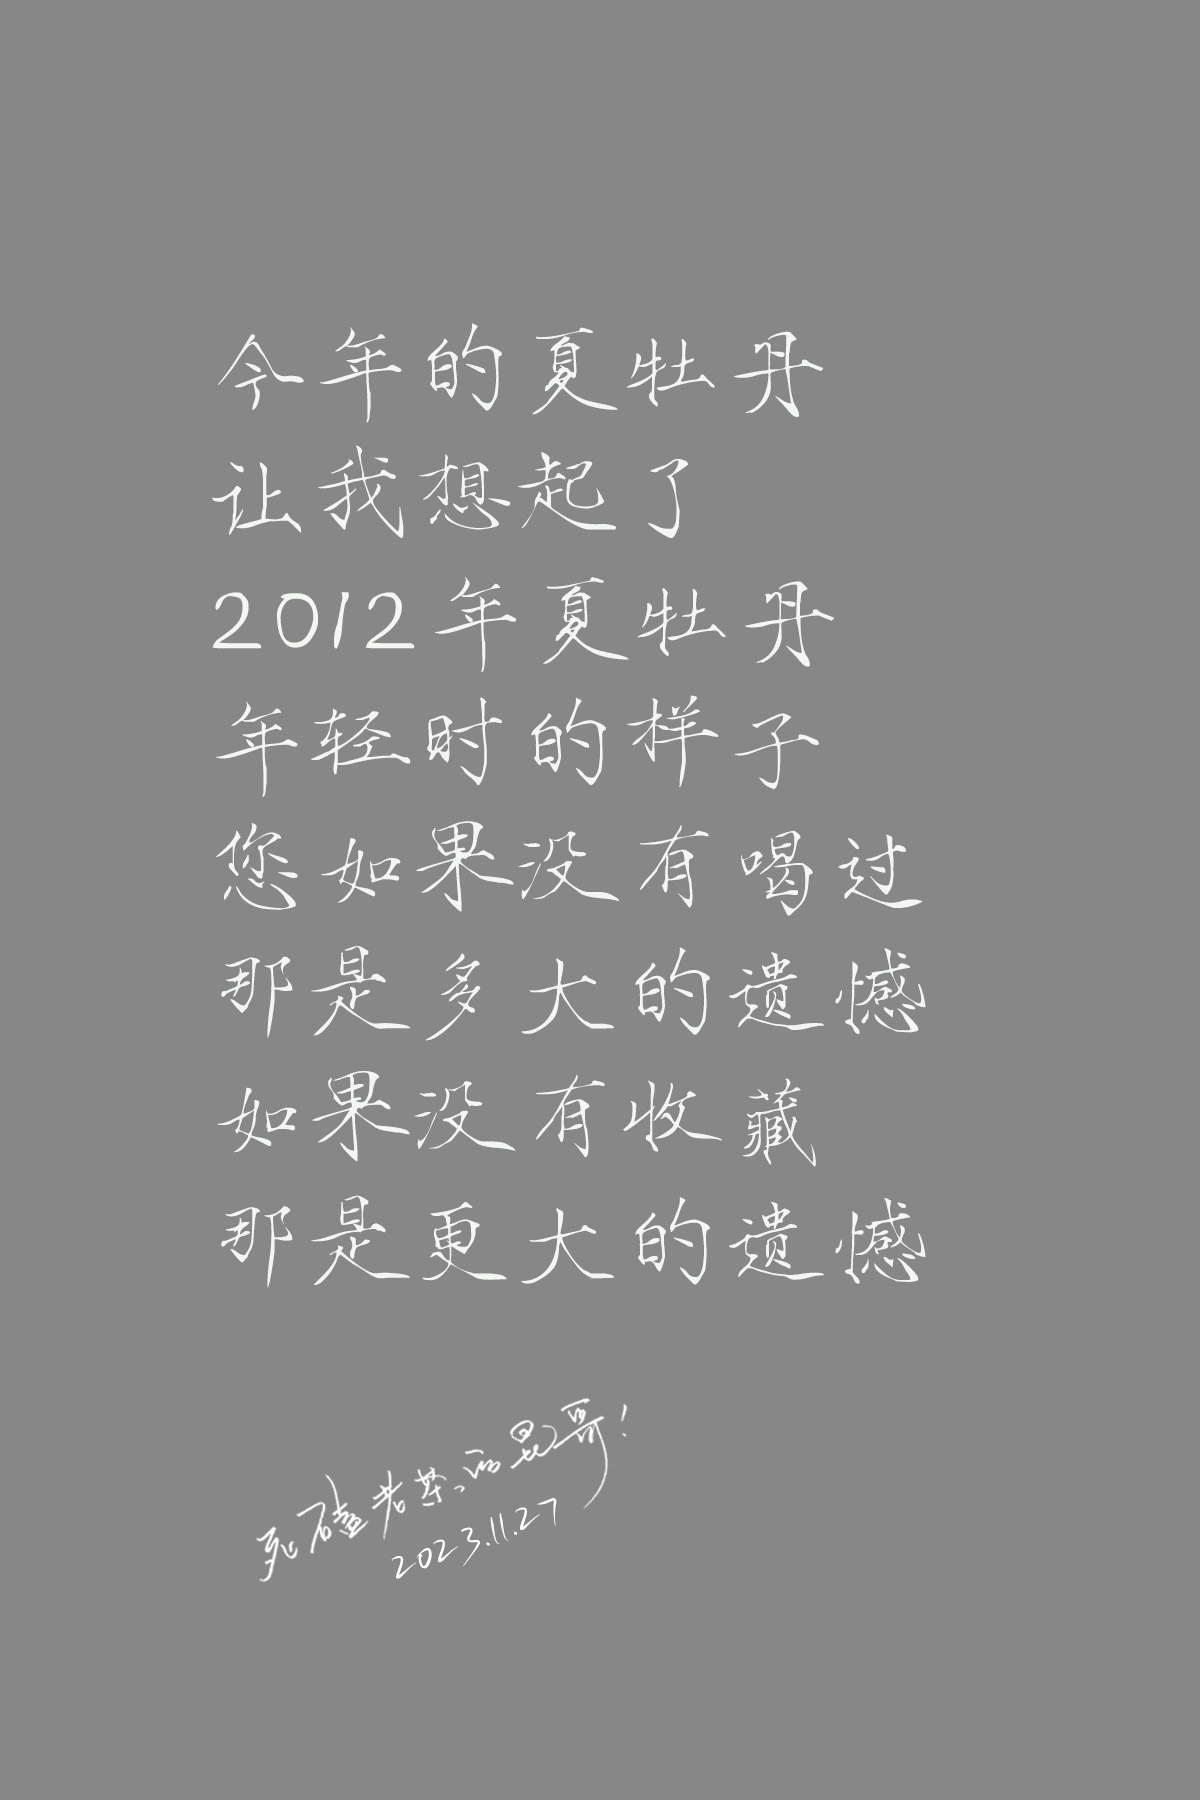 今年的夏牡丹
让我想起了
2012年夏牡丹
年轻时的样子
您如果没有喝过
那是多大的遗憾
如果没有收藏
那是更大的遗憾
死磕老茶的昆哥！
2023.11.27